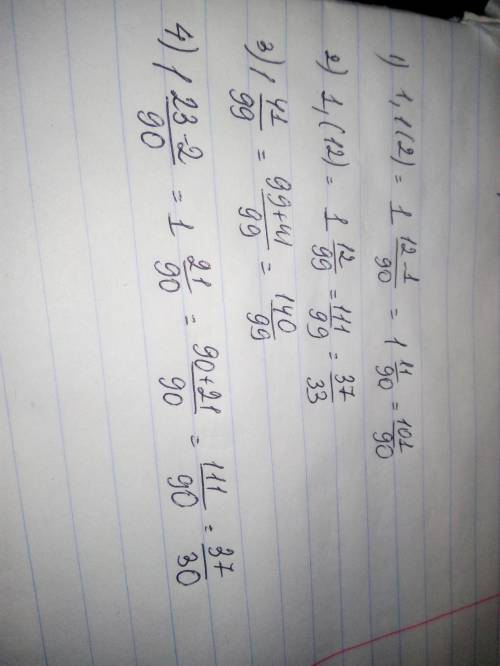 1) 1,1(2) = 1 12-1/90 = 1 11/90 = 101/90
2) 1,(12) = 1 12/99 = 111/99 = 37/33
3) 1 41/99 = 99+41/99 = 140/99
4) 1 23-2/90 = 1 21/90 = 90+21/90 = 111/90 = 37/30